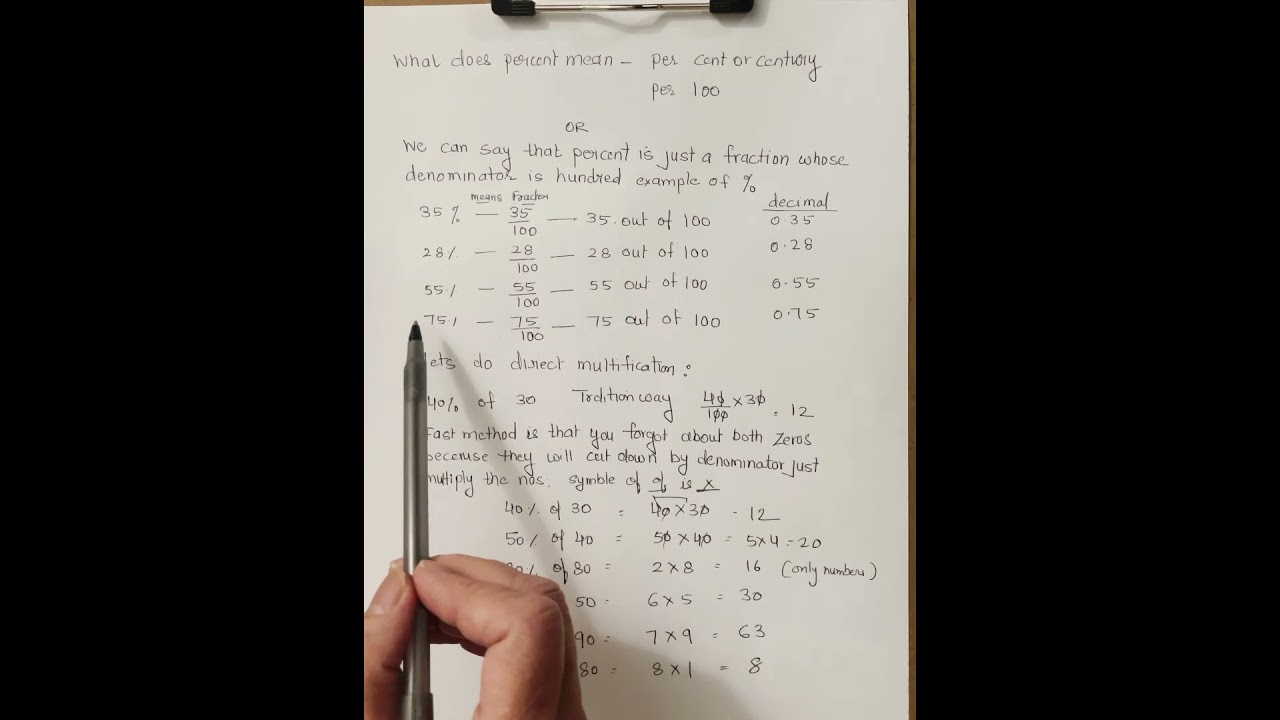 What does percent mean – per cent or century
per 100
OR
We can say that percent is just a fraction whose
denominator is hundred example of %
means Fraction decimal
35% — 35/100 — 35 out of 100 0.35
28% — 28/100 — 28 out of 100 0.28
55% — 55/100 — 55 out of 100 0.55
75% — 75/100 — 75 out of 100 0.75
lets do direct multification:
40% of 30 Trdition way 40/100 x 30 = 12
Fast method is that you forgot about both zeros
beceruse they will cut down by denominator just
multiply the nos. symble of of is x
40% of 30 = 40 x 30 - 12
50% of 40 = 50 x 40 = 5x4 = 20
of 80 = 2 x 8 = 16 (only numbers)
50 = 6 x 5 = 30
90 = 7 x 9 = 63
80 = 8 x 1 = 8